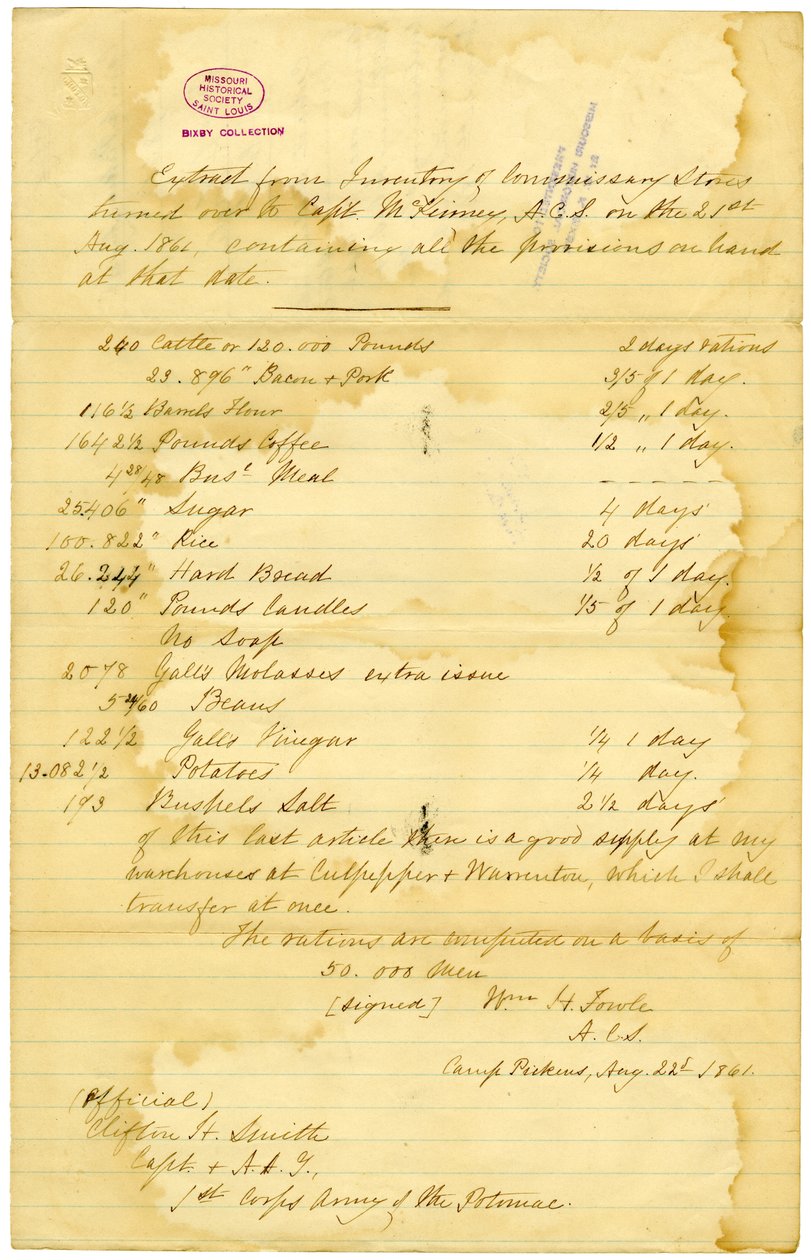 MISSOURI
HISTORICAL
SOCIETY
SAINT LOUIS
BIXBY COLLECTION
Extract from Inventory of Commissary Stores
turned over to Capt. McKinney, A.C.S. on the 21st
Aug. 1861, containing all the provisions on hand
at that date.
240 Cattle or 120.000 Pounds 2 days rations
23.896" Bacon + Pork 3/5 of 1 day.
116 1/2 Barrels Flour 2/5 " 1 day.
1642 1/2 Pounds Coffee 1/2 " 1 day.
4 28/48 Busl Meal - - - - - -
25.406" Sugar 4 days
100.822" Rice 20 days
26.244" Hard Bread 1/2 of 1 day.
120" Pounds Candles 1/5 of 1 day
No Soap
2078 Gall's Molasses extra issue
5 24/60 Beans
122 1/2 Galls Vinegar 1/4 1 day
13.082 1/2 Potatoes 1/4 day.
193 Bushels Salt 2 1/2 days
of this last article there is a good supply at my
warehouses at Culpepper + Warrenton, which I shall
transfer at once.
The rations are computed on a basis of
50.000 men
[signed] Wm H. Fowle
A.C.S.
Camp Pickens, Aug. 22d 1861.
(official)
Clifton H. Smith
Capt. + A.A.G.,
1st Corps Army of the Potomac.